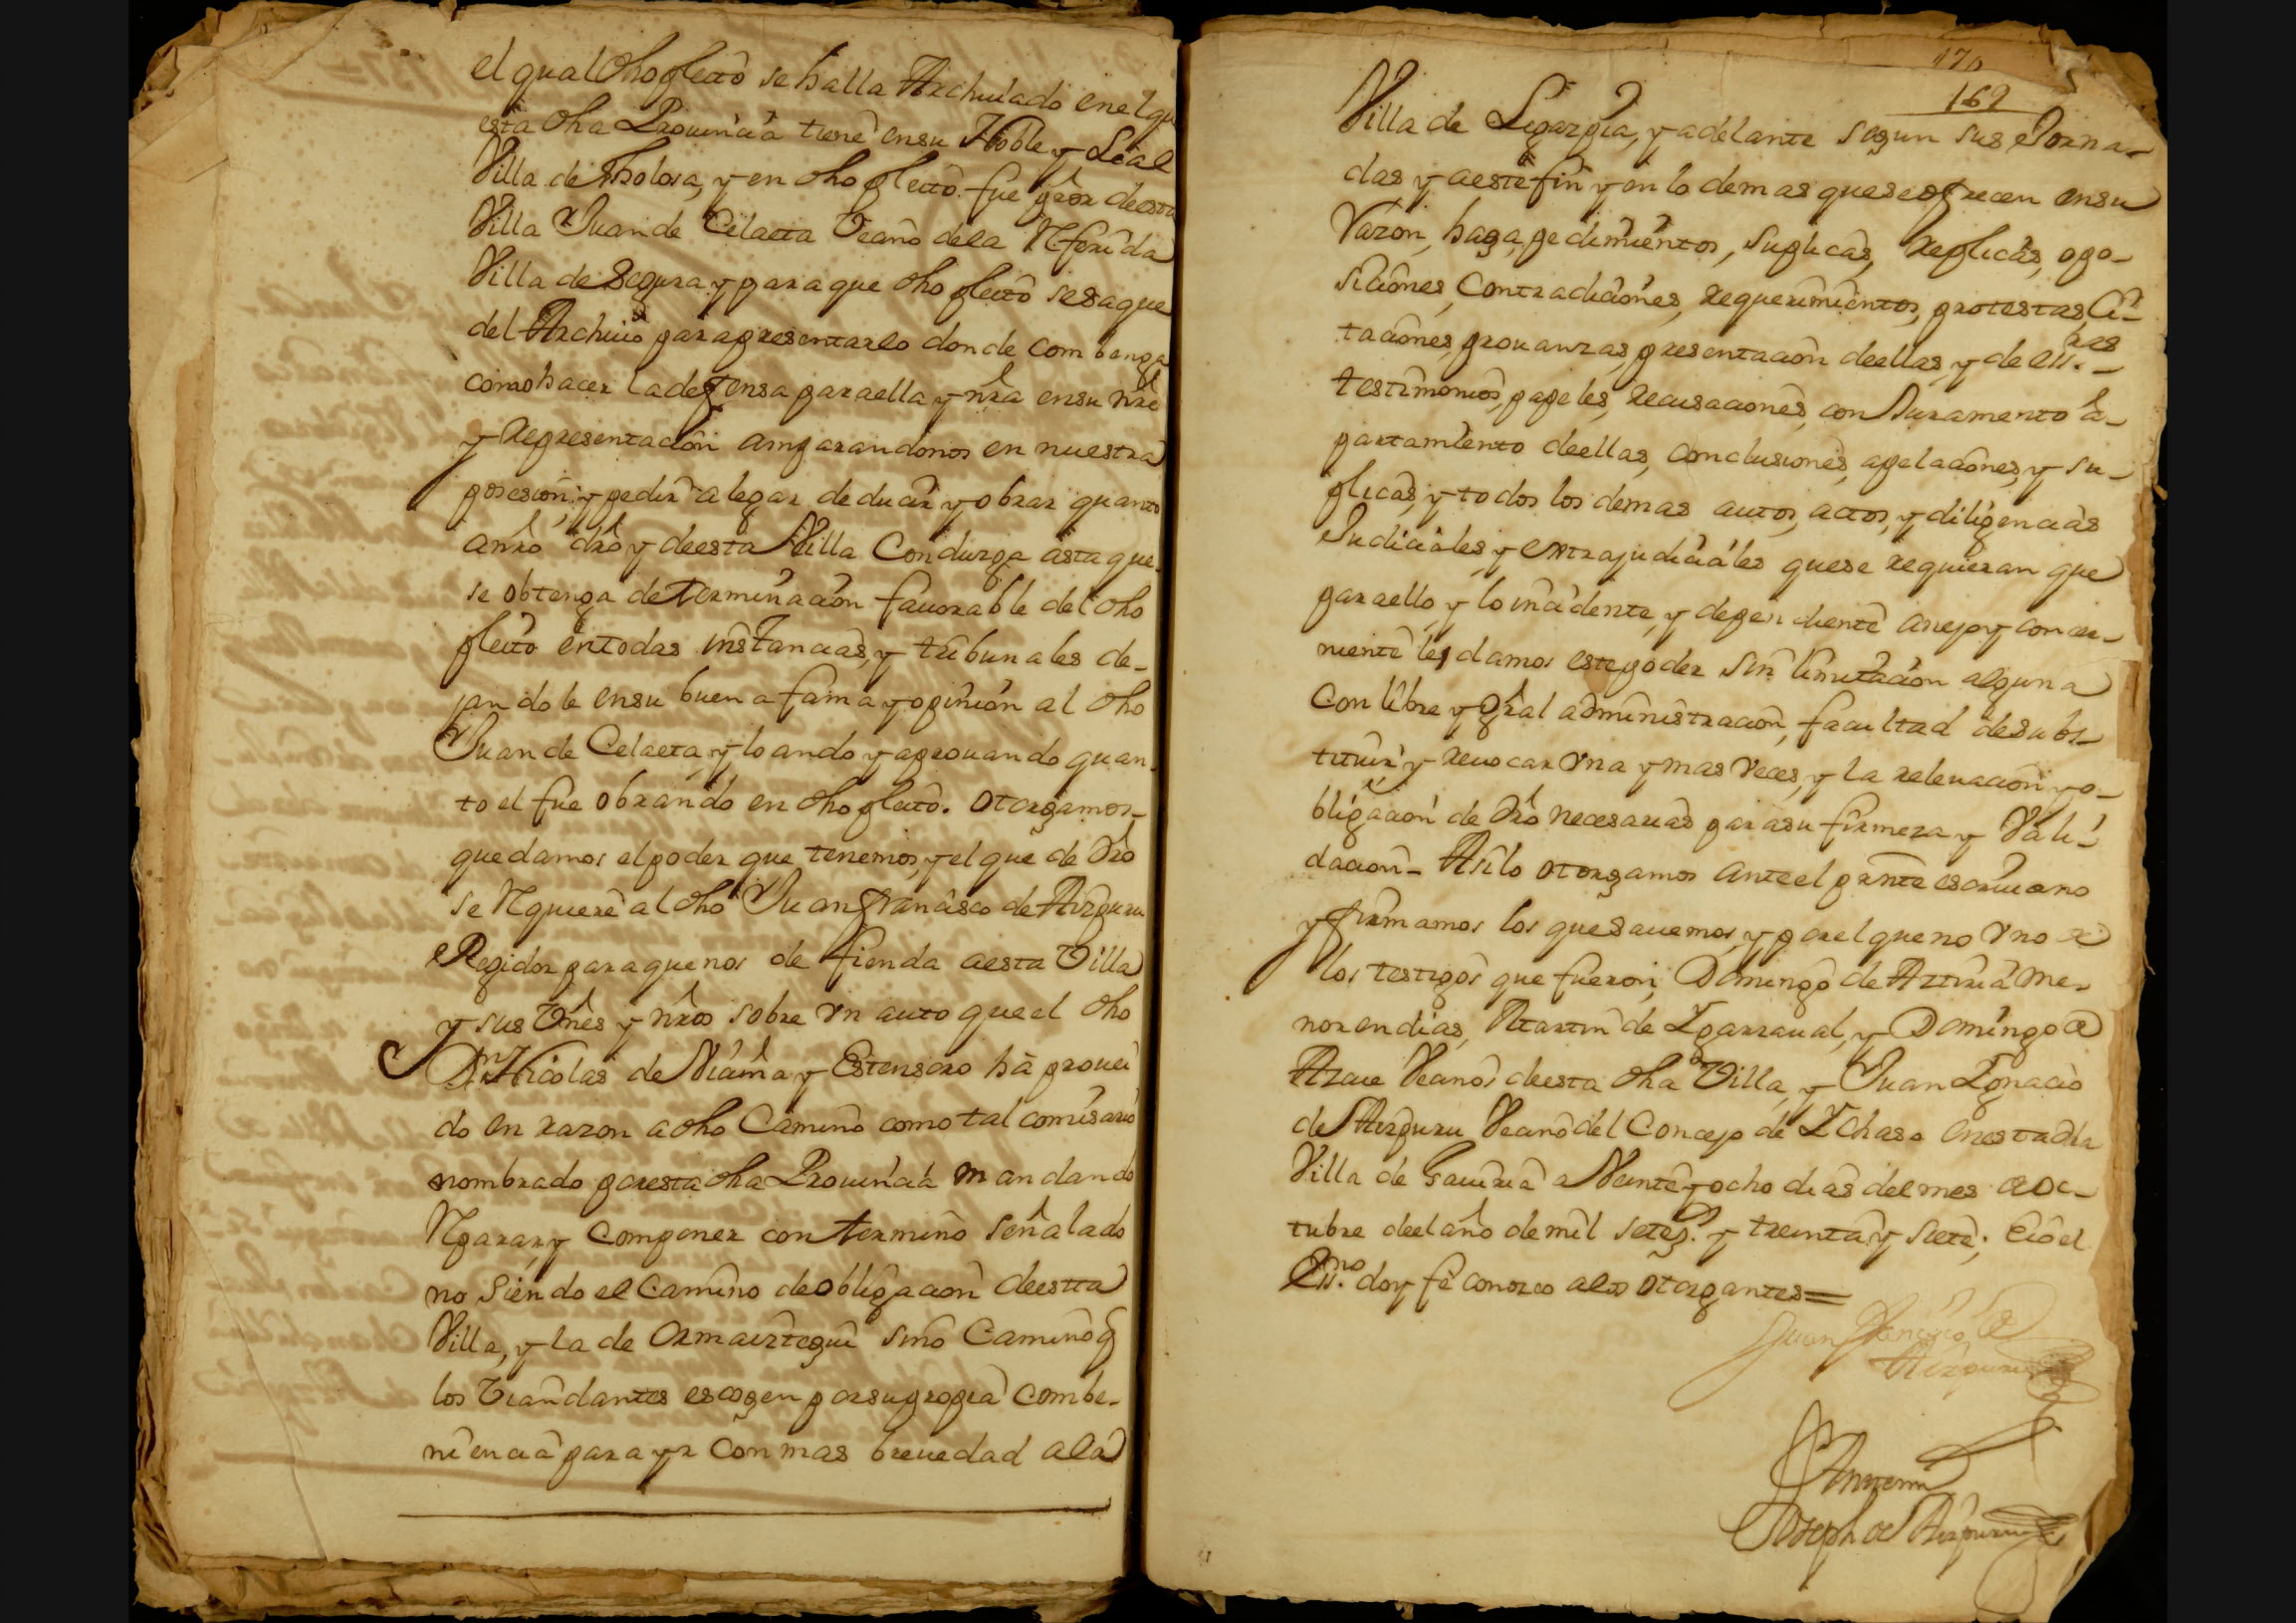 el qual dho pleito se halla Archiuado en el qu
esta dha Prouincia tiene en su Noble y Leal
Villa de Tholosa, y en dho pleito fue pror de esta
Villa Juan de Celaeta Vecino de la Referida
Villa de Segura y para que dho pleito se saque
del Archiuo para presentarlo donde combenga
como hacer la defensa para ella y nra en su nre
y Representacion amparandonos en nuestra
posesion; y pedir alegar deducir y obrar quanto
a nro dro y de esta Villa Conduzga asta que
se obtenga determinacion fauorable del dho
pleito en todas instancias, y tribunales de-
jandole en su buena fama y opinion al dho
Juan de Celaeta, y loando y aprouando quan-
to el fue obrando en dho pleito. Otorgamos
que damos el poder que tenemos, y el que de dro
se Requiere al dho Juan Francisco de Aizpuru
Regidor para que nos defienda a esta Villa
y sus Vnos y nros sobre vn auto que el dho
Dn Nicolas de Viama y Estensoro ha prouei
do en razon a dho Camino como tal comisario
nombrado por esta dha Prouincia mandando
Reparar, y componer con termino señalado
no siendo el camino de obligacion de esta
Villa, y la de Ormaiztegui sino Camino q
los Viandantes escogen por su propia combe-
niencia para yr con mas breuedad a la
170
169
Villa de Legazpia, y adelante segun sus Jorna-
das y a este fin y en lo demas que se ofrecen en su
razon, haga pedimientos, suplicas, replicas, opo-
siciones, Contradiciones, requerimientos, protestas, Ci-
taciones, prouanzas, presentacion de ellas, y de essras
testimonios, papeles, recusaciones, con Juramento a-
partamiento de ellas, conclusiones, apelaciones, y su-
plicas, y todos los demas autos, actos, y diligencias
Judiciales, y extrajudiciales que se requieran que
para ello, y lo incidente, y dependiente anejo y conue-
niente les damos este poder sin limitacion alguna
Con libre y Gral administracion, facultad de subs-
tituir, y reuocar vna y mas veces, y la releuacion y o-
bligacion de dro necesarias para su firmeza y Vali-
dacion- Asi lo otorgamos ante el prnte escriuano
y firmamos los que sauemos, y por el que no vno de
los testigos que fueron; Domingo de Aztiria me-
nor en dias, Martin de Igarzaual, y Domingo de
Azcue Vecinos de esta dha Villa, y Juan Ignacio
de Aizpuru Vecino del Concejo de Ichaso en esta dha
Villa de Gauiria a Veinte y ocho dias del mes de Oc-
tubre de el año de mil setezs. y treinta y siete; e io el
Essno. doy fe conozco a los otorgantes=
Juan Francisco de
Aizpuru
Ante mi
Joseph de Aizpuru